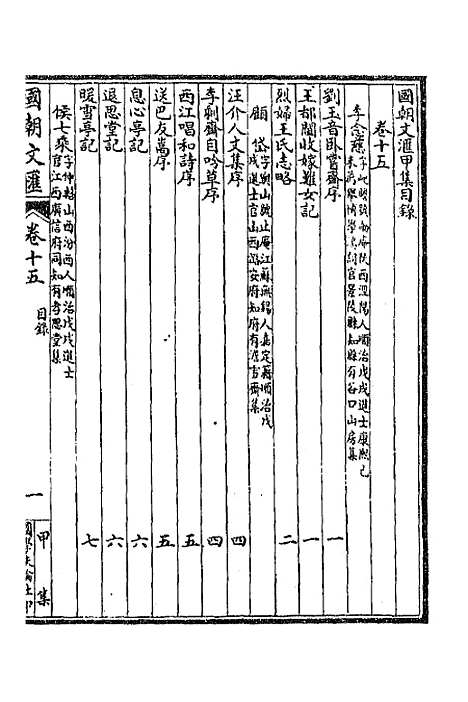 國朝文匯甲集目錄
卷十五
李念慈字屺瞻號劬庵陝西涇陽人順治戊戌進士康熙己未薦舉博學鴻詞官景陵縣知縣有谷口山房集
劉玉音卧嘗齋序 一
王都閫收嫁難女記 一
烈婦王氏志略 二
顧岱字與山號止庵江蘇無錫人嘉定籍順治戊戌進士官山西潞安府知府有澹雪齋集
汪介人文集序 四
李劬齋自吟草序 四
西江唱和詩序 五
送巴友萬序 五
息心亭記 六
退思堂記 六
暖雪亭記 七
侯七乘字仲輅山西汾西人順治戊戌進士官江西廣信府同知有孝思堂集
國朝文匯 卷十五 目錄 一 甲集
國學扶輪社印